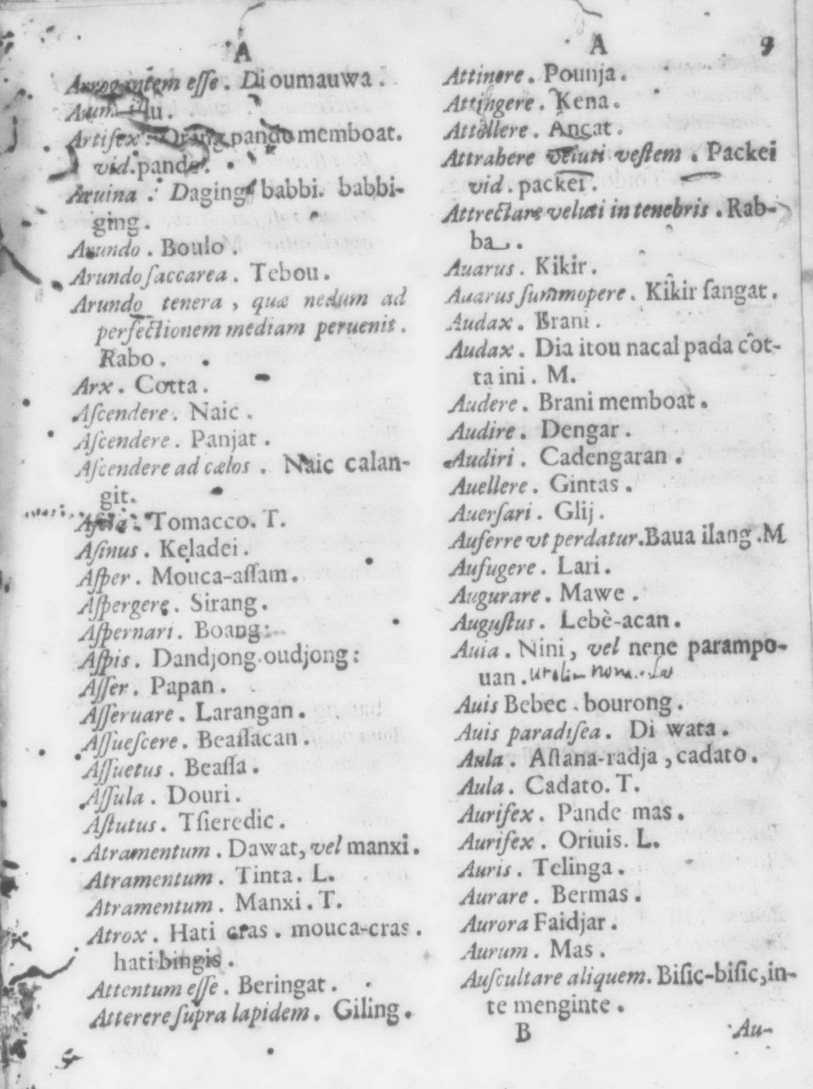 A
Arrogantem eſſe. Dioumauwa.
Artifex. Orang pando memboat.
vid. pando.
Aruina. Daging babbi. babbi-
ging.
Arundo. Boulo.
Arundo ſaccarea. Tebou.
Arundo tenera, quæ nedum ad
perfectionem mediam peruenit.
Rabo.
Arx. Cotta.
Aſcendere. Naic.
Aſcendere. Panjat.
Aſcendere ad cælos. Naic calan-
git.
Tomacco. T.
Aſinus. Keladei.
Aſper. Mouca-aſſam.
Aſpergere. Sirang.
Aſpernari. Boang:
Aſpis. Dandjong.oudjong:
Aſſer. Papan.
Aſſeruare. Larangan.
Aſſueſcere. Beaſſacan.
Aſſuetus. Beaſſa.
Aſſula. Douri.
Aſtutus. Tſieredic.
Atramentum. Dawat, vel manxi.
Atramentum. Tinta. L.
Atramentum. Manxi. T.
Atrox. Hati cras. mouca-cras.
hati bingis.
Attentum eſſe. Beringat.
Atterere ſupra lapidem. Giling.
A 9
Attinere. Pounja.
Attingere. Kena.
Attollere. Ancat.
Attrahere veluti veſtem. Packei
vid. packei.
Attrectare veluti in tenebris. Rab-
ba.
Auarus. Kikir.
Auarus ſummopere. Kikir ſangat.
Audax. Brani.
Audax. Dia itou nacal pada cot-
ta ini. M.
Audere. Brani memboat.
Audire. Dengar.
Audiri. Cadengaran.
Auellere. Gintas.
Auerſari. Glij.
Auferre vt perdatur. Baua ilang. M
Aufugere. Lari.
Augurare. Mawe.
Auguſtus. Lebè-acan.
Auia. Nini, vel nene parampo-
uan.
Auis Bebec. bourong.
Auis paradiſea. Di wata.
Aula. Aſtana-radja, cadato.
Aula. Cadato. T.
Aurifex. Pande mas.
Aurifex. Oriuis. L.
Auris. Telinga.
Aurare. Bermas.
Aurora Faidjar.
Aurum. Mas.
Auſcultare aliquem. Biſic-biſic, in-
te menginte.
B Au-